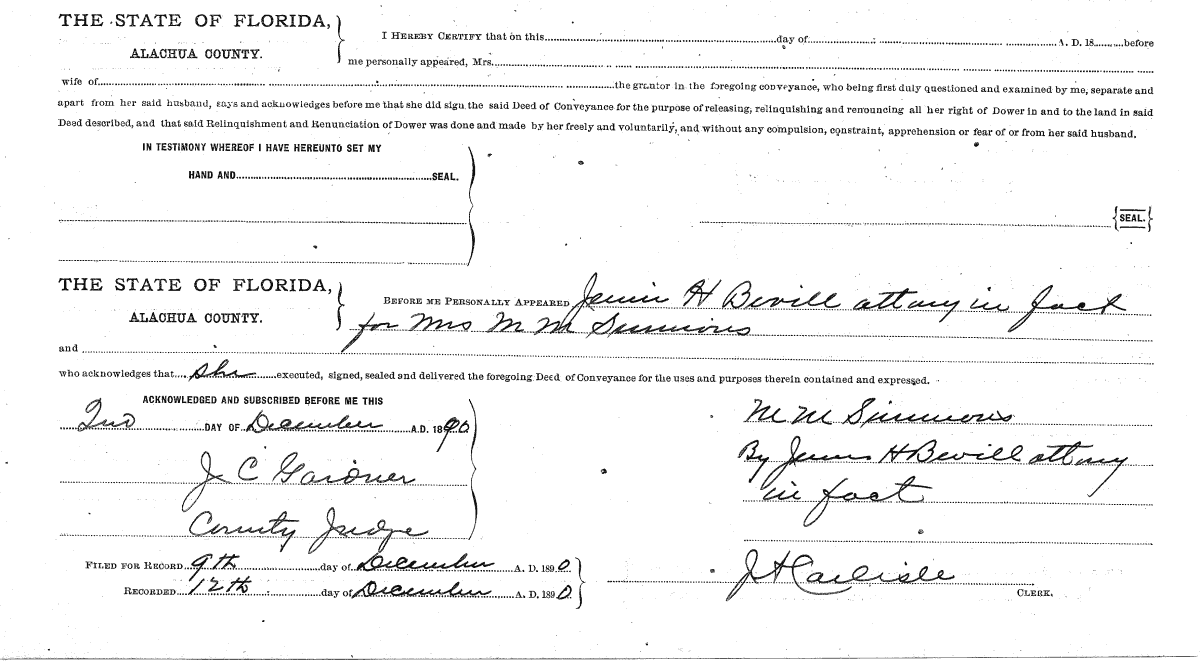 THE STATE OF FLORIDA,
ALACHUA COUNTY.
I HEREBY CERTIFY that on this day of A. D. 18 before
me personally appeared, Mrs.
wife of the grantor in the foregoing conveyance, who being first duly questioned and examined by me, separate and
apart from her said husband, says and acknowledges before me that she did sign the said Deed of Conveyance for the purpose of releasing, relinquishing and renouncing all her right of Dower in and to the land in said
Deed described, and that said Relinquishment and Renunciation of Dower was done and made by her freely and voluntarily, and without any compulsion, constraint, apprehension or fear of or from her said husband.
IN TESTIMONY WHEREOF I HAVE HEREUNTO SET MY
HAND AND SEAL.
SEAL.
THE STATE OF FLORIDA,
ALACHUA COUNTY.
BEFORE ME PERSONALLY APPEARED H Bevill attony in fact
for Mrs M M Simmons
and
who acknowledges that she executed, signed, sealed and delivered the foregoing Deed of Conveyance for the uses and purposes therein contained and expressed.
ACKNOWLEDGED AND SUBSCRIBED BEFORE ME THIS
2nd DAY OF December A.D. 1890
J C Gardner
County Judge
M M Simmons
By H Bevill attony
in fact
FILED FOR RECORD 9th day of December A. D. 1890
RECORDED 12th day of December A. D. 1890
J H Carlisle
CLERK.